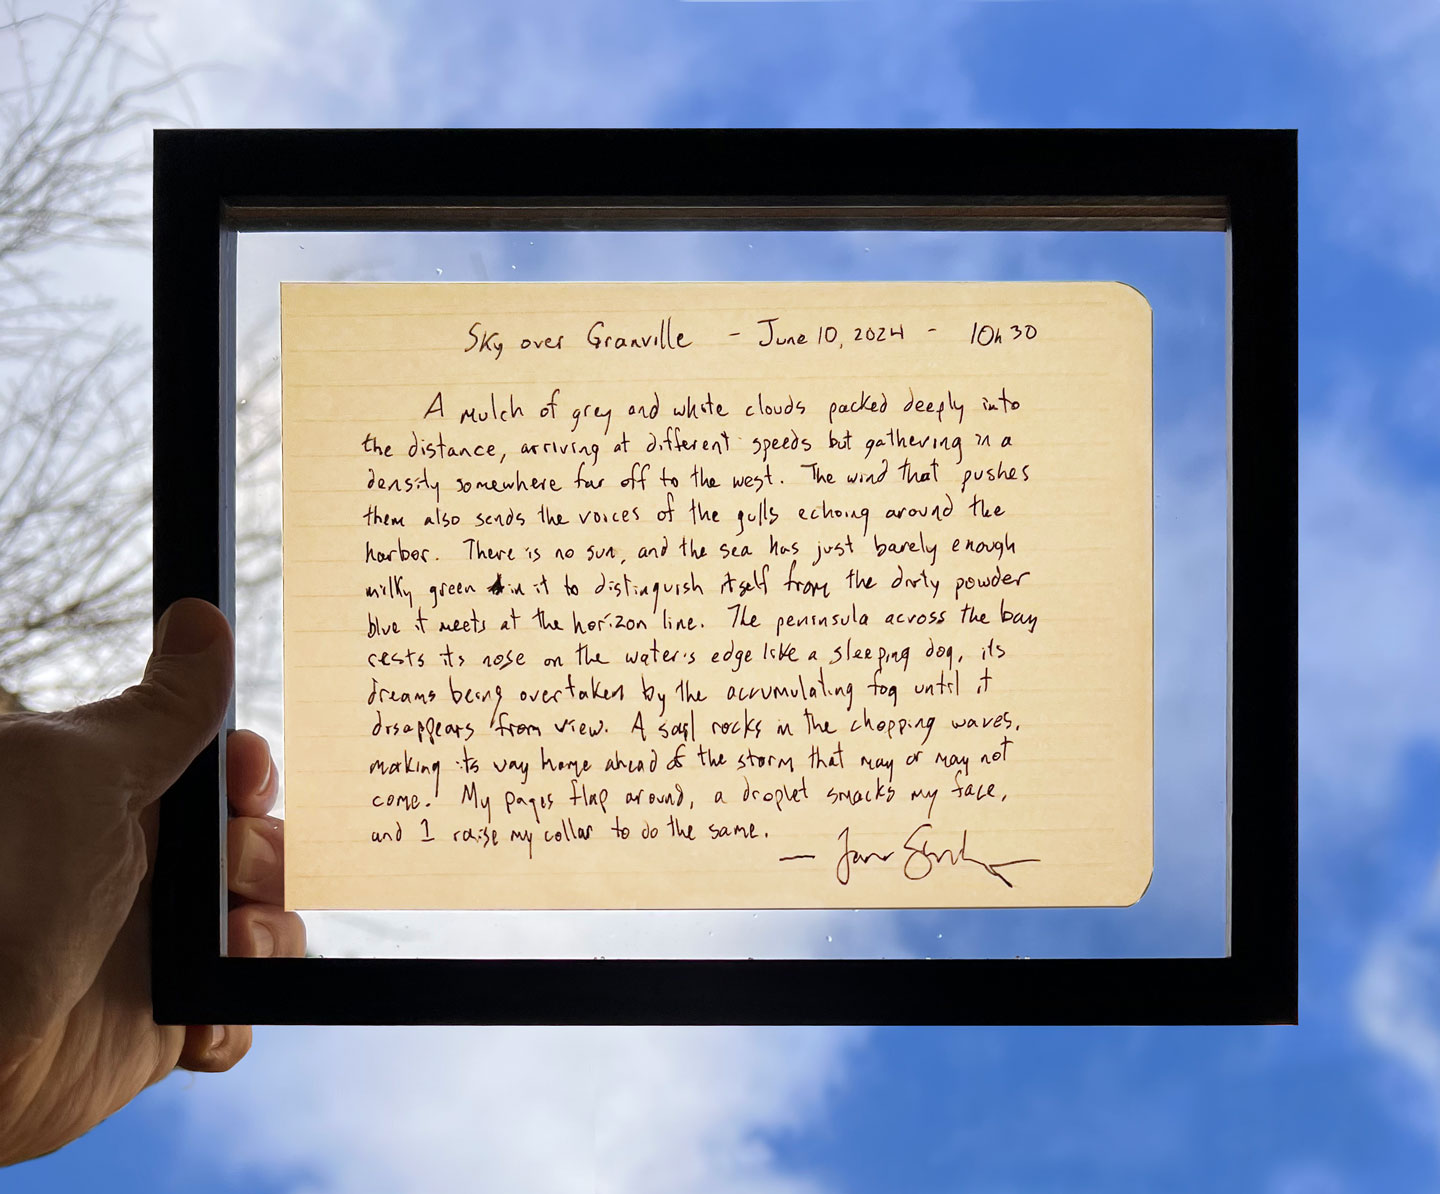 Sky over Granville - June 10, 2024 - 10h30
A mulch of grey and white clouds packed deeply into
the distance, arriving at different speeds but gathering in a
density somewhere far off to the west. The wind that pushes
them also sends the voices of the gulls echoing around the
harbor. There is no sun, and the sea has just barely enough
milky green in it to distinguish itself from the dirty powder
blue it meets at the horizon line. The peninsula across the bay
rests its nose on the water's edge like a sleeping dog, its
dreams being overtaken by the accumulating fog until it
disappears from view. A sail rocks in the chopping waves,
making its way home ahead of the storm that may or may not
come. My pages flap around, a droplet smacks my face,
and I raise my collar to do the same.